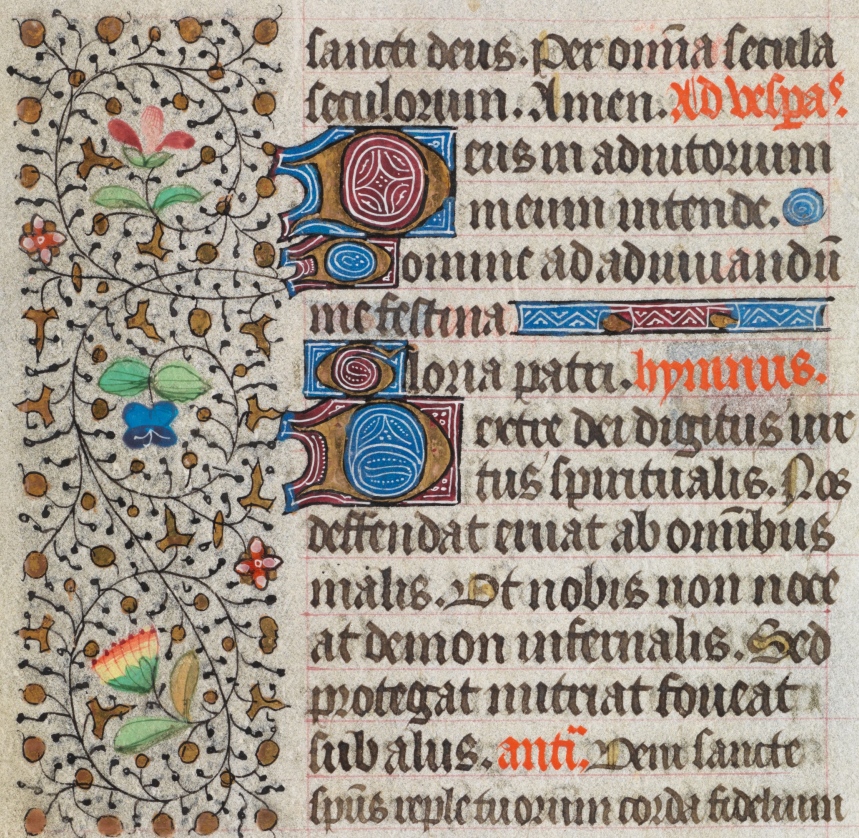 sancti deus. Per om̄ia secula
seculorum. Amen. Ad vesp̱as.
Deus in adiutorium
meum intende.
Domine ad adiuuandū
me festina
Gloria patri. hymnus.
Dextre dei digitus uir
tus spiritualis. Nos
deffendat eruat ab om̄ibus
malis. Ut nobis non noce
at demon infernalis. Sed
protegat nutriat foueat
sub alus. antī. Veni sancte
sp̄us reple tuorum corda fidelium